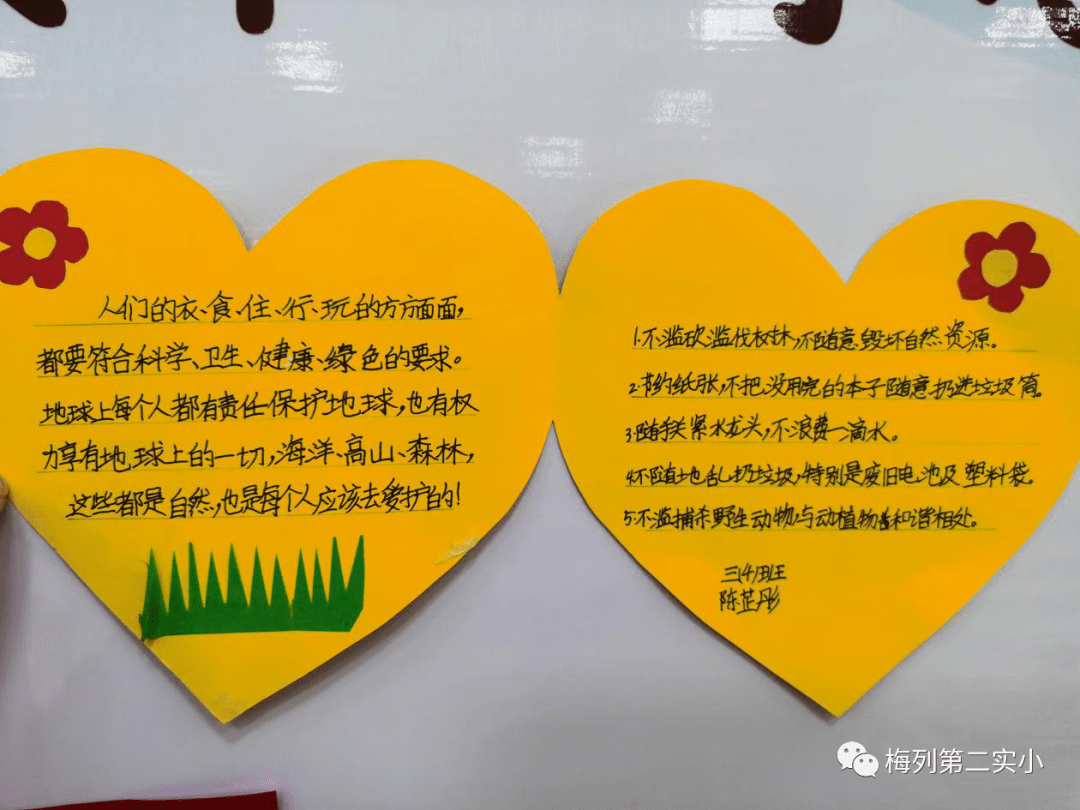 人们的衣、食、住、行、玩的方方面面,
都要符合科学、卫生、健康、绿色的要求。
地球上每个人都有责任保护地球,也有权
力享有地球上的一切,海洋、高山、森林,
这些都是自然,也是每个人应该去爱护的!
1.不滥砍滥伐树林,不随意毁坏自然资源。
2.节约纸张,不把没用完的本子随意扔进垃圾筒。
3.随手关紧水龙头,不浪费一滴水。
4.不随地乱扔垃圾,特别是废旧电池及塑料袋。
5.不滥捕杀野生动物与动植物和谐相处。
三(4)班
陈芷彤
梅列第二实小